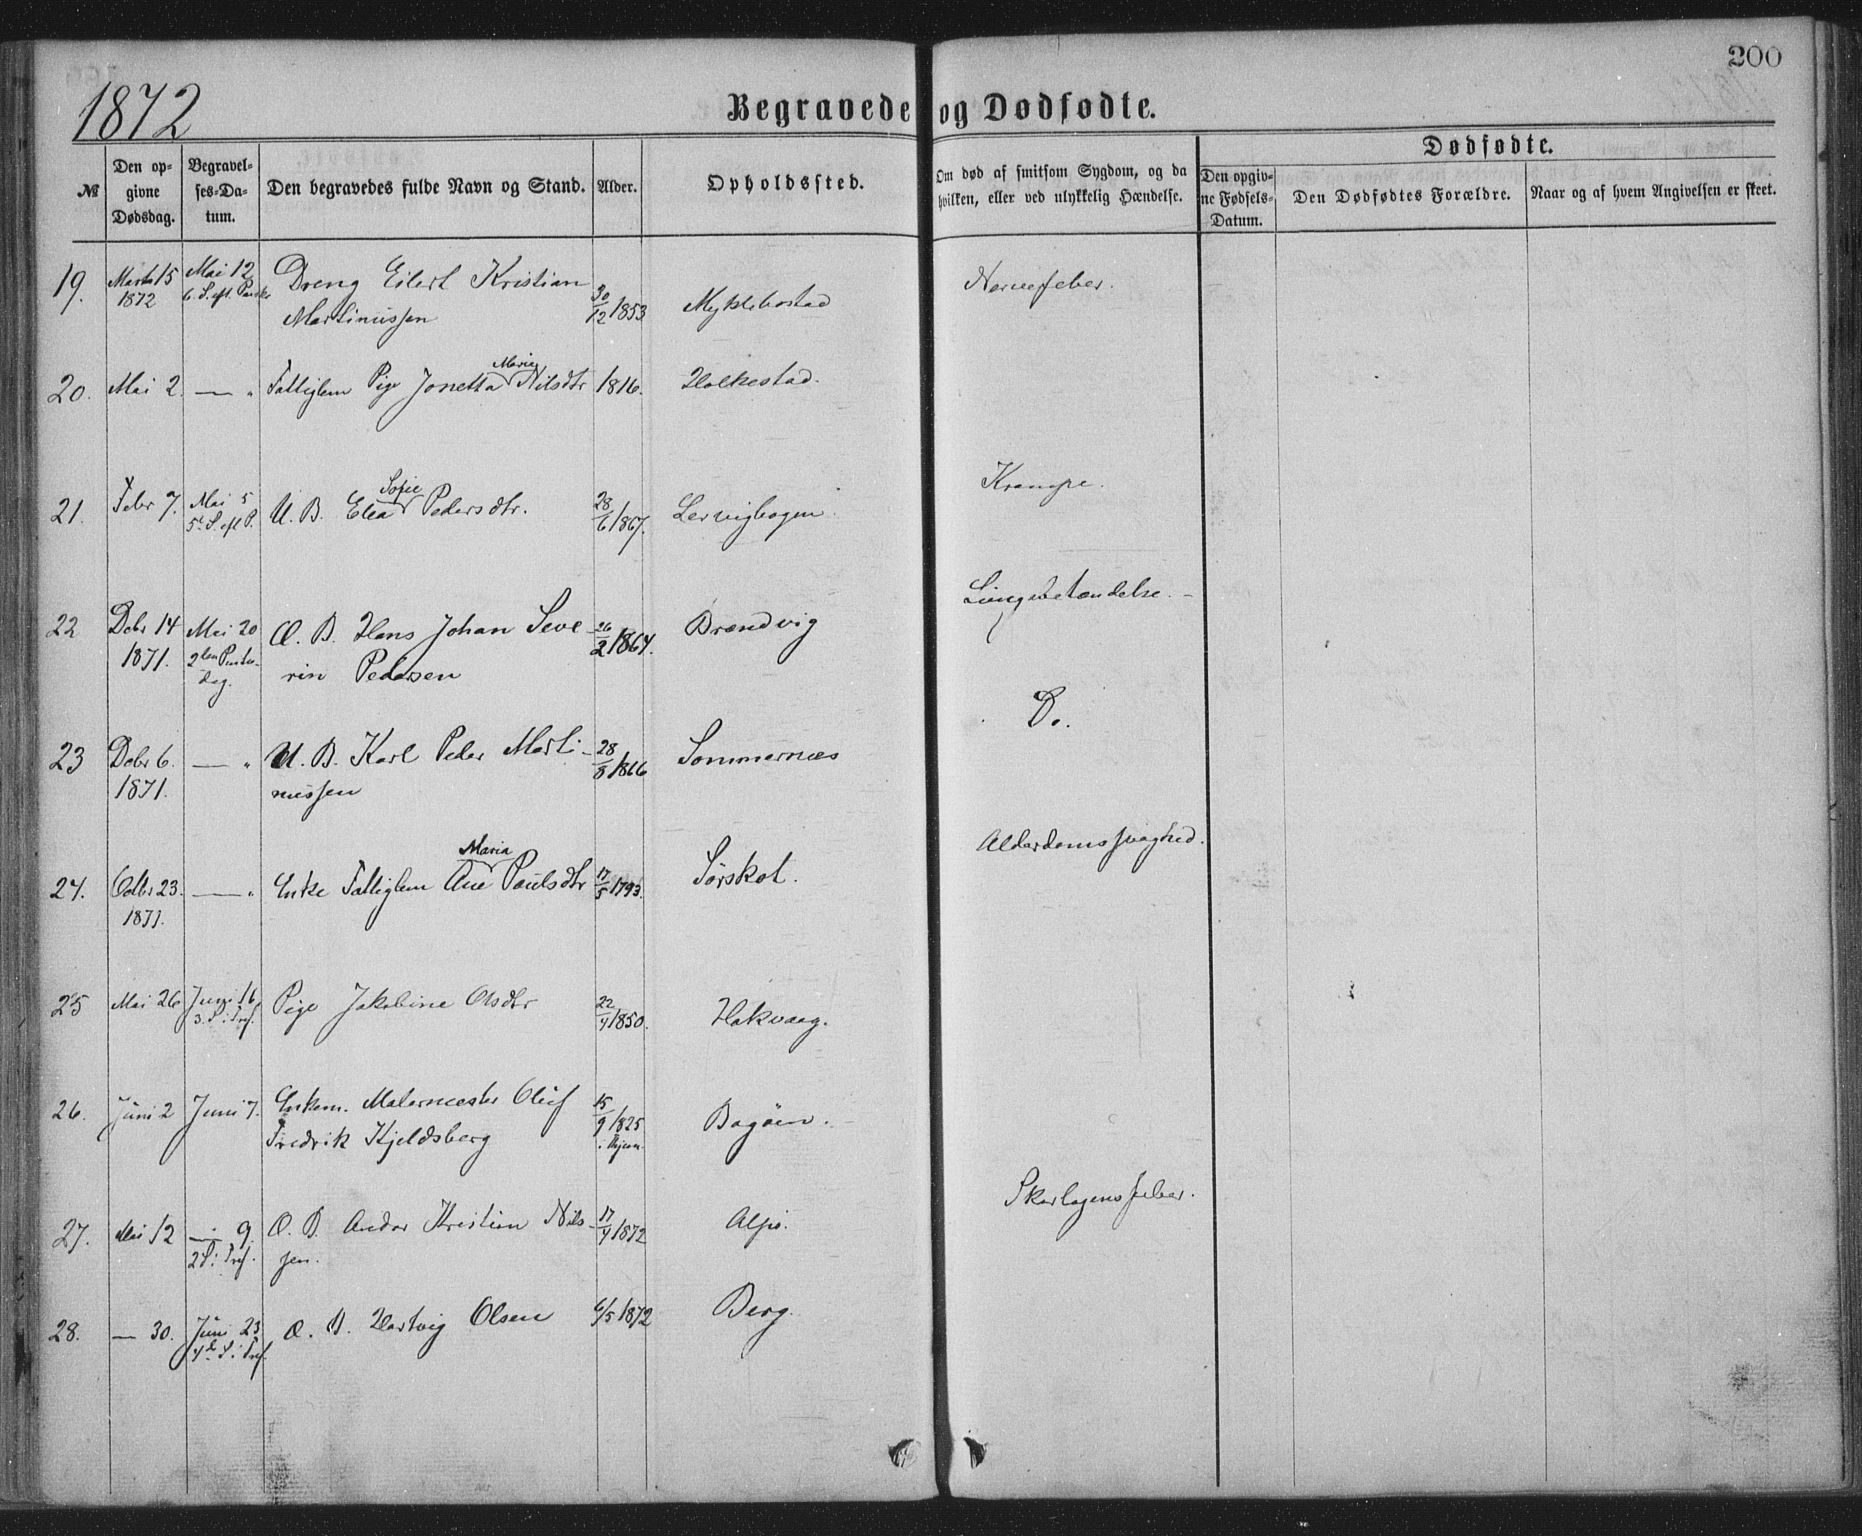 200
1872 Begravede og Dødfødte.
№ Den opgivne Dødsdag. Begravelses-Datum. Den begravedes fulde Navn og Stand. Alder. Opholdssted. Om død af smitsom Sygdom, og da hvilken, eller ved ulykkelig Hændelse. Dødfødte. Den opgivne Fødsels-Datum. Den Dødfødtes Forældre. Naar og af hvem Angivelsen er skeet.
19. Marts 15 Mai 12 Dreng Eilert Kristian 30/12 1853 Myklebostad Nervefeber.
1872 6. S. eft. Paaske Martinussen
20. Mai 2. — „ Fattiglem Pige Jonetta Marie Nilsdtr 1816. Holkestad.
21. Febr 7. Mai 5 U. B. Elea Sofie Pedersdtr. 28/6 1867. Lervigbogen Krampe.
5t S. eft P.
22 Debr 14 Mai 20 Æ. B. Hans Johan Seve- 26/2 1864. Brændvig Lungebetændelse.
1871. 2den Pintsedag. rin Pedersen
23 Debr 6. — „ U. B. Karl Peder Marti- 28/8 1866 Sommernæs Do.
1871. nussen
24. Octbr 23. — „ Enke Fattiglem Ane Maria Paulsdtr 17/5 1793. Sørskot. Alderdomssvaghed.
1871.
25 Mai 26 Juni 16 Pige Jakobine Olsdtr 22/4 1850. Hakvaag.
3. S. i Tref.
26. Juni 2 Juni 7. Enkem. Malermester Oluf 15/9 1825 Bogöen.
Fredrik Kjeldsberg
27. Mai 12 — 9. Æ. B. Andor Kristian Nils- 17/4 1872 Alpö. Skarlagensfeber.
2 S. i Tref. sen.
28. — 30. Juni 23 Æ. B. Hartvig Olsen 6/5 1872 Berg.
4de S. i Tref.